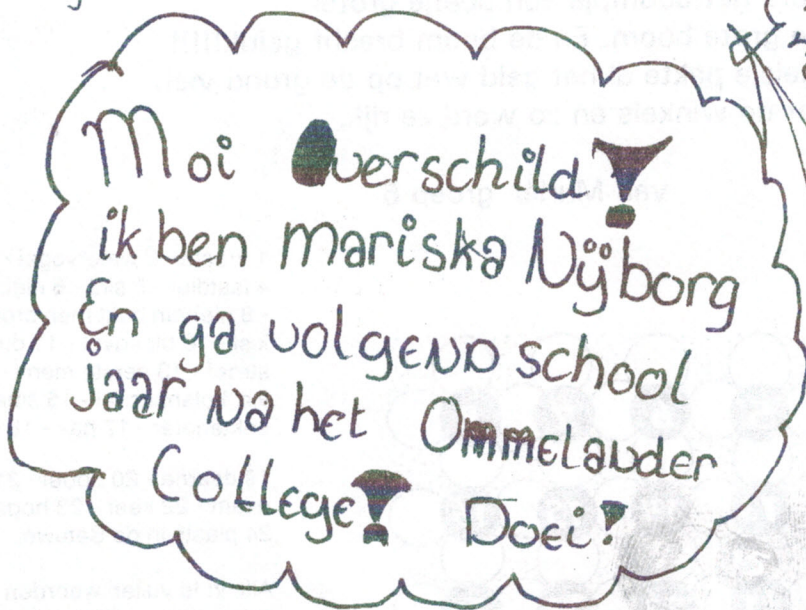 Moi Overschild!
ik ben mariska Nÿborg
En ga volgend school
jaar na het Ommelander
College! Doei!